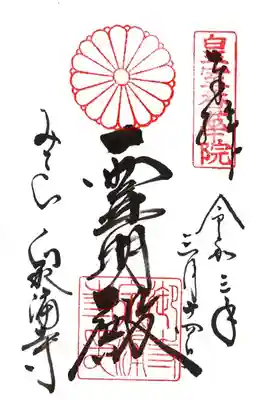 皇室香華院
奉拝
令和三年
三月
霊明殿
みてら 泉涌寺